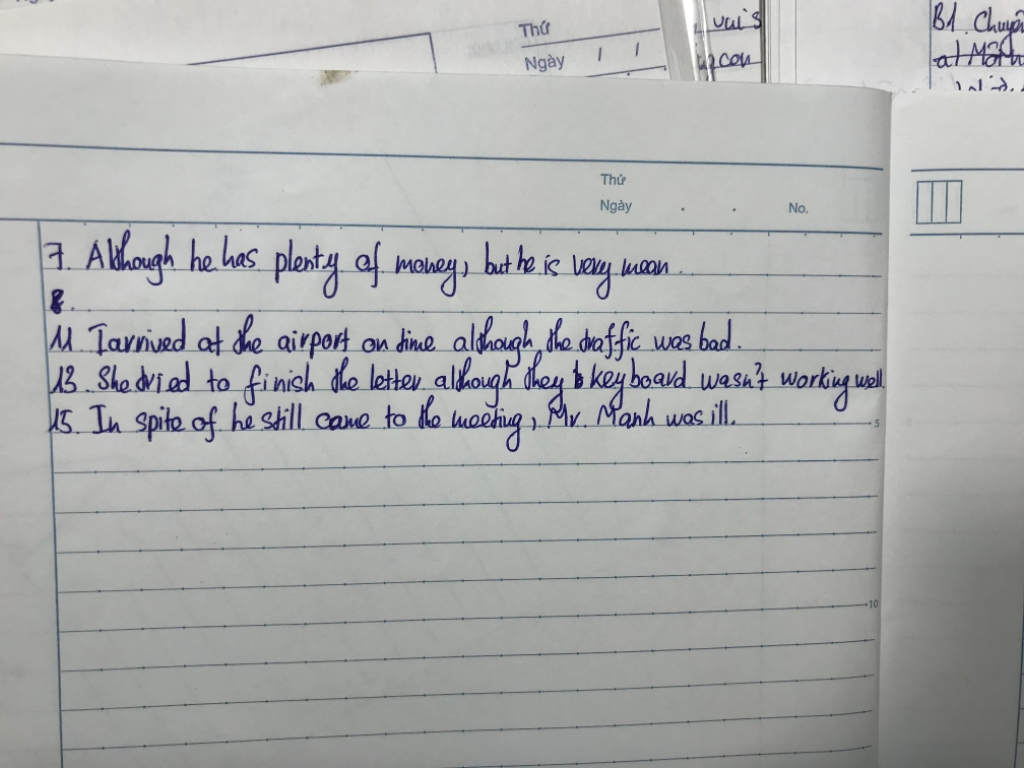 Thứ
Ngày / /
vui's
con
B1. Chuyển
a) Một
Thứ
Ngày . . No.
7. Although he has plenty of money, but he is very mean.
8.
11. I arrived at the airport on time although the traffic was bad.
13. She tried to finish the letter although they keyboard wasn't working well.
15. In spite of he still came to the meeting, Mr. Manh was ill.
5
10